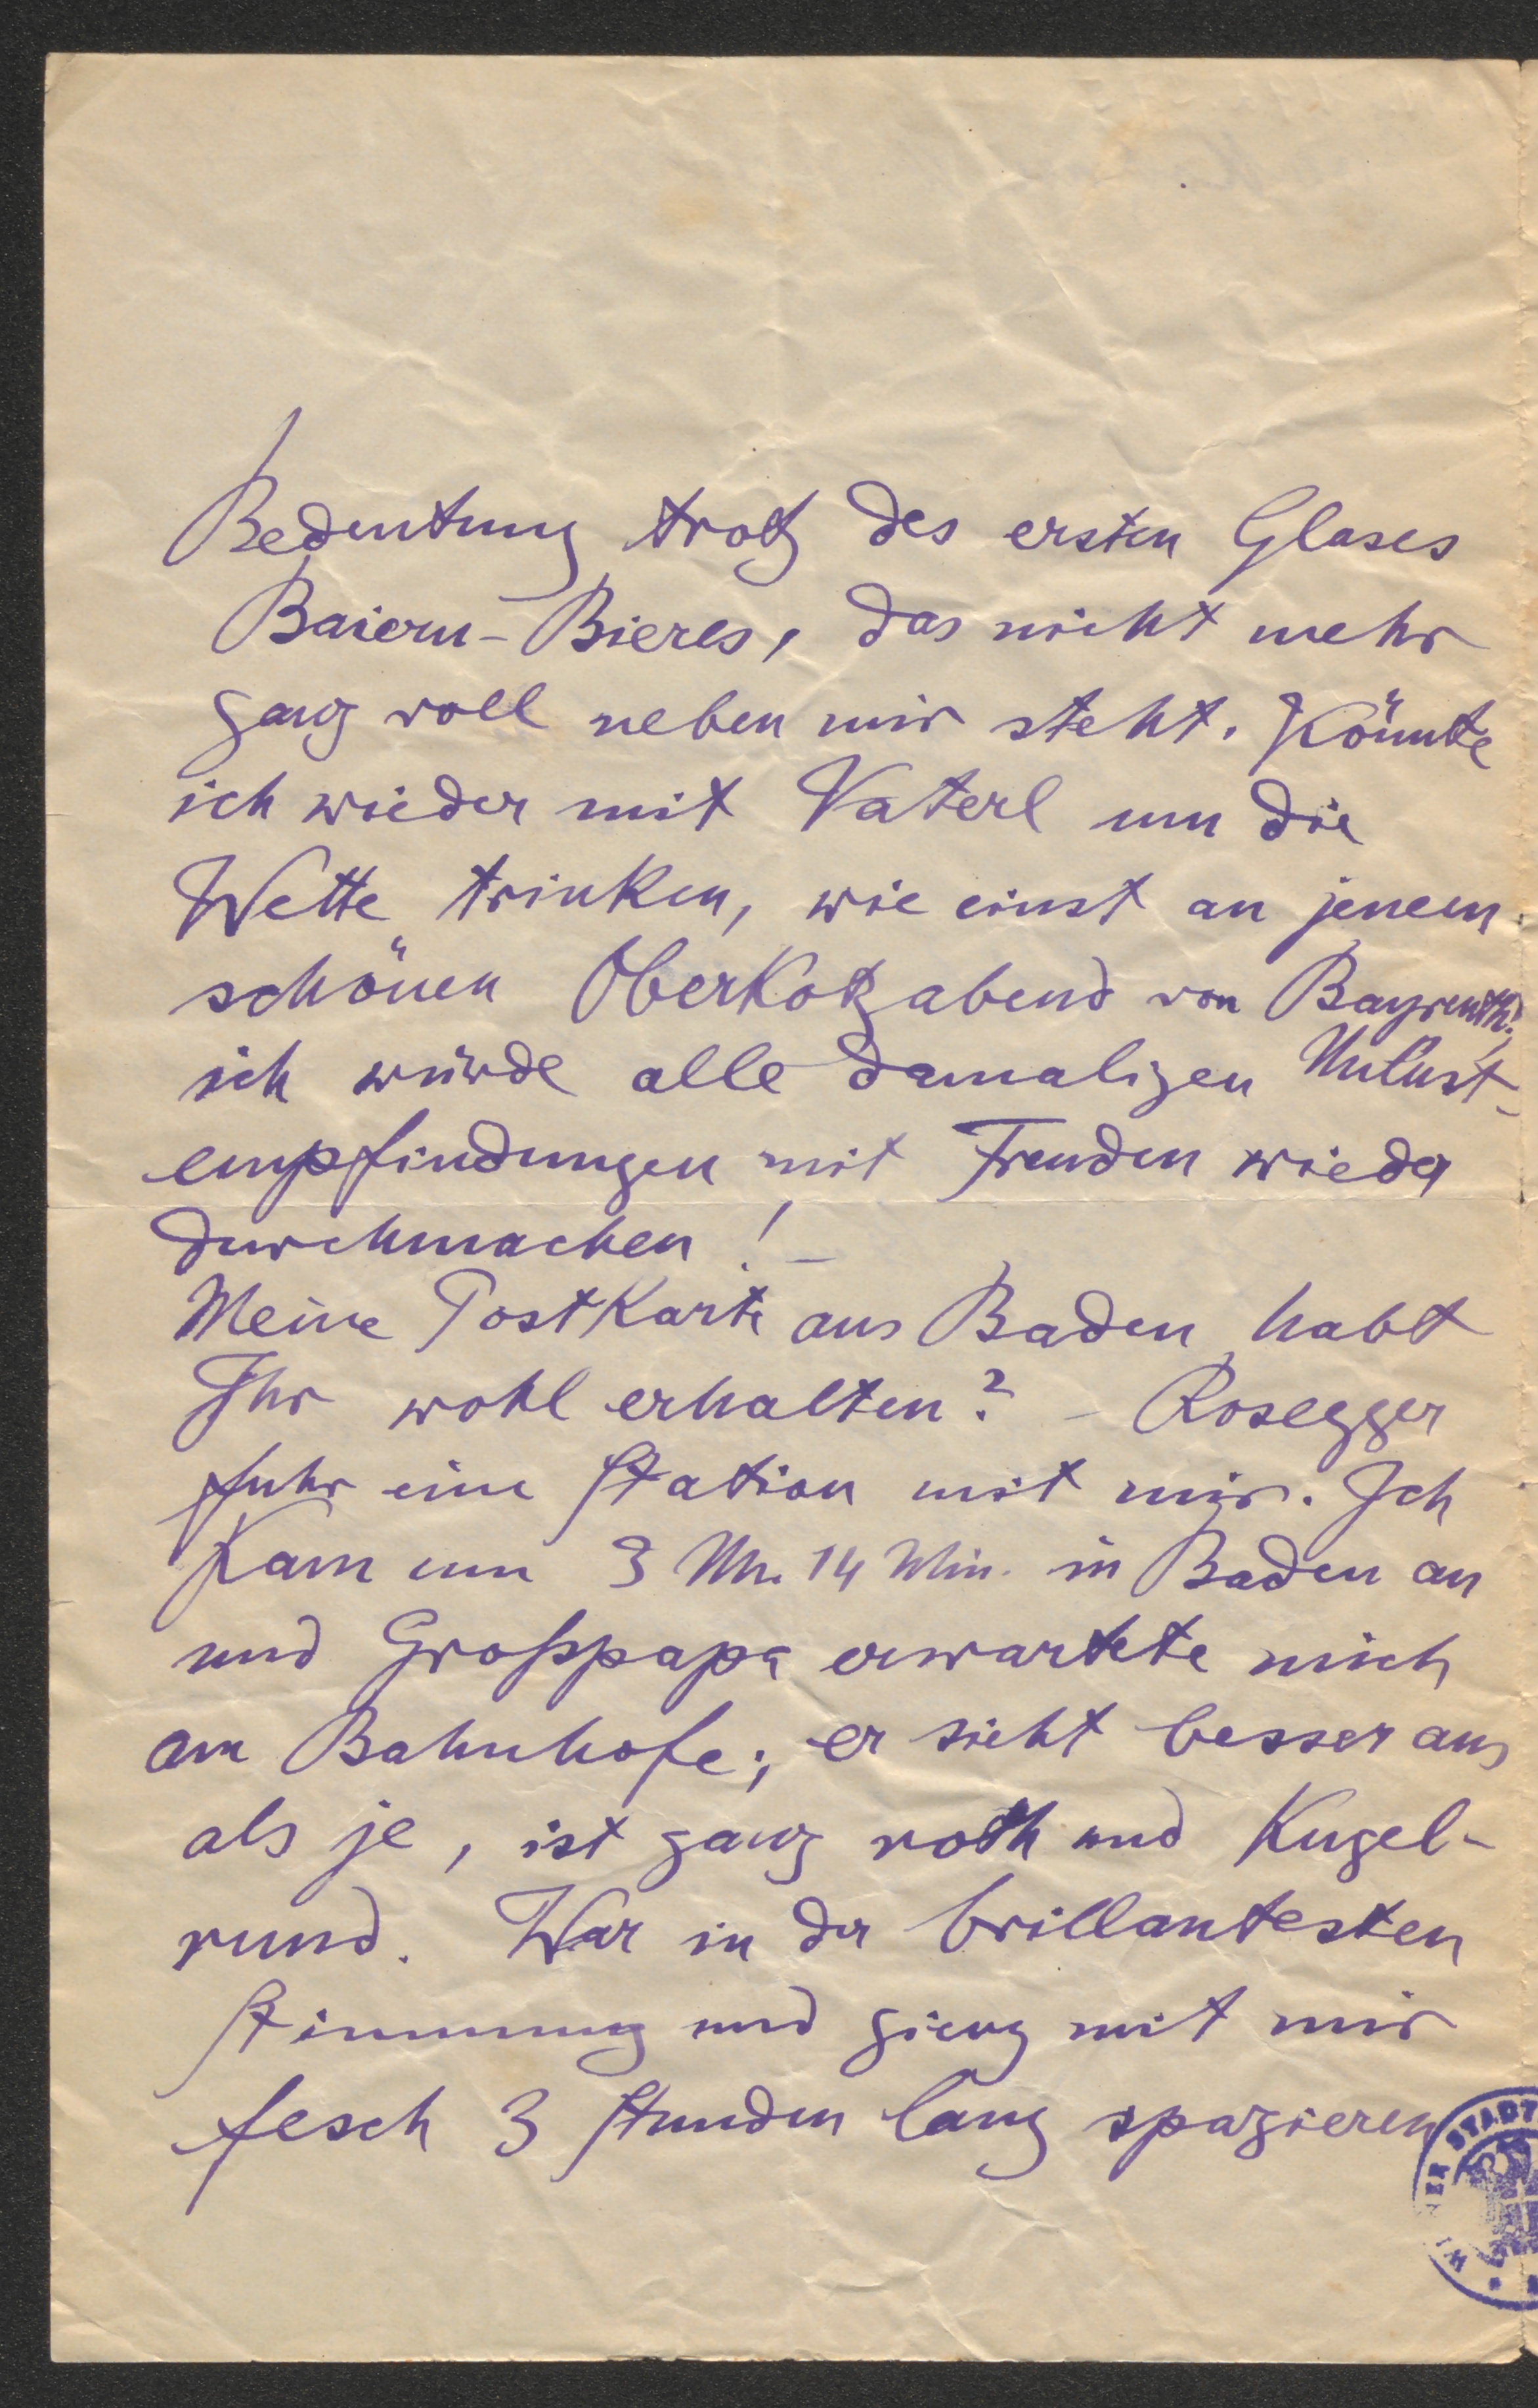 Bedeutung trotz des ersten Glases
Baiern-Bieres, das nicht mehr
ganz voll neben mir steht. Könnte
ich wieder mit Vaterl um die
Wette trinken, wie einst an jenem
schönen Oberkotzabend von Bayreuth!
ich würde alle damaligen Unlust-
empfindungen mit Freuden wieder
durchmachen! –
Meine Postkarte aus Baden habt
Ihr wohl erhalten? – Rosegger
fuhr eine Station mit mir. Ich
kam um 3 Uhr 14 Min. in Baden an
und Großpapa erwartete mich
am Bahnhofe; er sieht besser aus
als je, ist ganz roth und Kugel-
rund. War in der brillantesten
Stimmung und gieng mit mir
fesch 3 Stunden lang spazieren
WIENER STADT